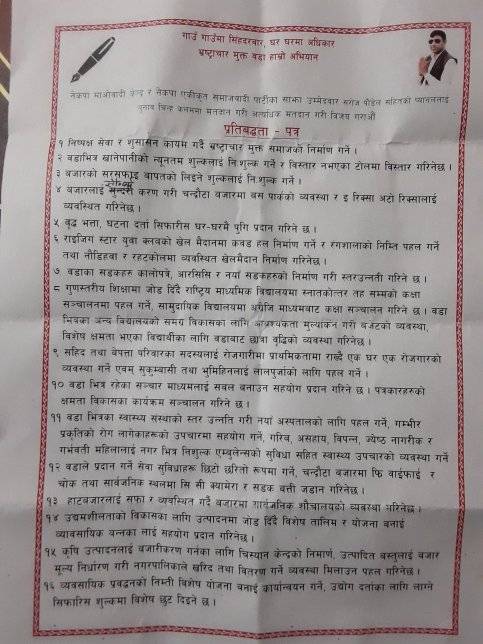 गाउँ गाउँमा सिंहदरवार, घर घरमा अधिकार
भ्रष्टाचार मुक्त वडा हाम्रो अभियान
नेकपा माओवादी केन्द्र र नेकपा एकीकृत समाजवादी पार्टीका साझा उम्मेदवार सरोज पौडेल सहितको प्यानललाई
चुनाव चिन्ह कलममा मतदान गरी अत्यधिक मतदान गरी विजय गराऔं
प्रतिबद्धता - पत्र
१ निष्पक्ष सेवा र शुसासन कायम गर्दै भ्रष्टाचार मुक्त समाजको निर्माण गर्ने ।
२ वडाभित्र खानेपानीको न्यूनतम शुल्कलाई निःशुल्क गर्ने र विस्तार नभएका टोलमा विस्तार गरिनेछ ।
३ बजारको सरसफाइ वापतको लिइने शुल्कलाई निःशुल्क गर्ने ।
४ बजारलाई सौन्दर्य करण गरी चन्द्रौटा बजारमा बस पार्कको व्यवस्था र इ रिक्सा अटो रिक्सालाई
व्यवस्थित गरिनेछ ।
५ वृद्ध भत्ता, घटना दर्ता सिफारीस घर-घरमै पुगि प्रदान गरिने छ ।
६ राइजिंग स्टार युवा क्लवको खेल मैदानमा कवर्ड हल निर्माण गर्ने र रंगशालाको निम्ति पहल गर्ने
तथा नौडिहवा र रहटकोलमा व्यवस्थित खेलमैदान निर्माण गरिनेछ ।
७ वडाका सडकहरु कालोपत्रे, आरसिसि र नयाँ सडकहरुको निर्माण गरी स्तरउन्नती गरिने छ ।
८ गुणस्तरीय शिक्षामा जोड दिँदै राष्ट्रिय माध्यमिक विद्यालयमा स्नातकोत्तर तह सम्मको कक्षा
सञ्चालनमा पहल गर्ने, सामुदायिक विद्यालयमा अंग्रेजि माध्यमवाट कक्षा सञ्चालन गरिने छ । वडा
भित्रका अन्य विद्यालयको समग्र विकासका लागि आवश्यकता मुल्यांकन गरी बजेटको व्यवस्था,
विशेष क्षमता भएका विद्यार्थीका लागि वडाबाट छात्रा वृद्धिको व्यवस्था गरिनेछ ।
९ सहिद तथा वेपत्ता परिवारका सदस्यलाई रोजगारीमा प्राथमिकतामा राख्दै एक घर एक रोजगारको
व्यवस्था गर्ने एवम् सुकुम्बासी तथा भुमिहिनलाई लालपुर्जाको लागि पहल गर्ने ।
१० वडा भित्र रहेका सञ्चार माध्यमलाई सबल बनाउन सहयोग प्रदान गरिने छ । पत्रकारहरुको
क्षमता विकासका कार्यक्रम सञ्चालन गरिने छ ।
११ वडा भित्रका स्वास्थ्य संस्थाको स्तर उन्नति गरी नयाँ अस्पतालको लागि पहल गर्ने, गम्भीर
प्रकृतिको रोग लागेकाहरूको उपचारमा सहयोग गर्ने, गरिव, असहाय, विपन्न, ज्येष्ठ नागरीक र
गर्भवती महिलालाई नगर भित्र निशुल्क एम्बुलेन्सको सुविधा सहित स्वास्थ्य उपचारको व्यवस्था गर्ने
१२ वडाले प्रदान गर्ने सेवा सुविधाहरू छिटो छरितो रूपमा गर्ने, चन्द्रौटा बजारमा फि वाईफाई र
चोक तथा सार्वजनिक स्थलमा सि सी क्यामेरा र सडक बत्ती जडान गरिनेछ ।
१३ हाटबजारलाई सफा र व्यवस्थित गर्दै बजारमा सार्वजनिक शौचालयको व्यवस्था गरिनेछ ।
१४ उद्यमशीलताको विकासका लागि उत्पादनमा जोड दिँदै विशेष तालिम र योजना बनाई
व्यावसायिक बन्नका लाई सहयोग प्रदान गरिनेछ ।
१५ कृषि उत्पादनलाई बजारीकरण गर्नका लागि चिस्यान केन्द्रको निमार्ण, उत्पादित बस्तुलाई बजार
मूल्य निर्धारण गरी नगरपालिकाले खरिद तथा वितरण गर्ने व्यवस्था मिलाउन पहल गरिनेछ ।
१६ व्यवसायिक प्रवद्धनको निम्ती विशेष योजना बनाई कार्यान्वयन गर्ने, उद्योग दर्ताका लागि लाग्ने
सिफारिस शुल्कमा विशेष छुट दिइने छ ।